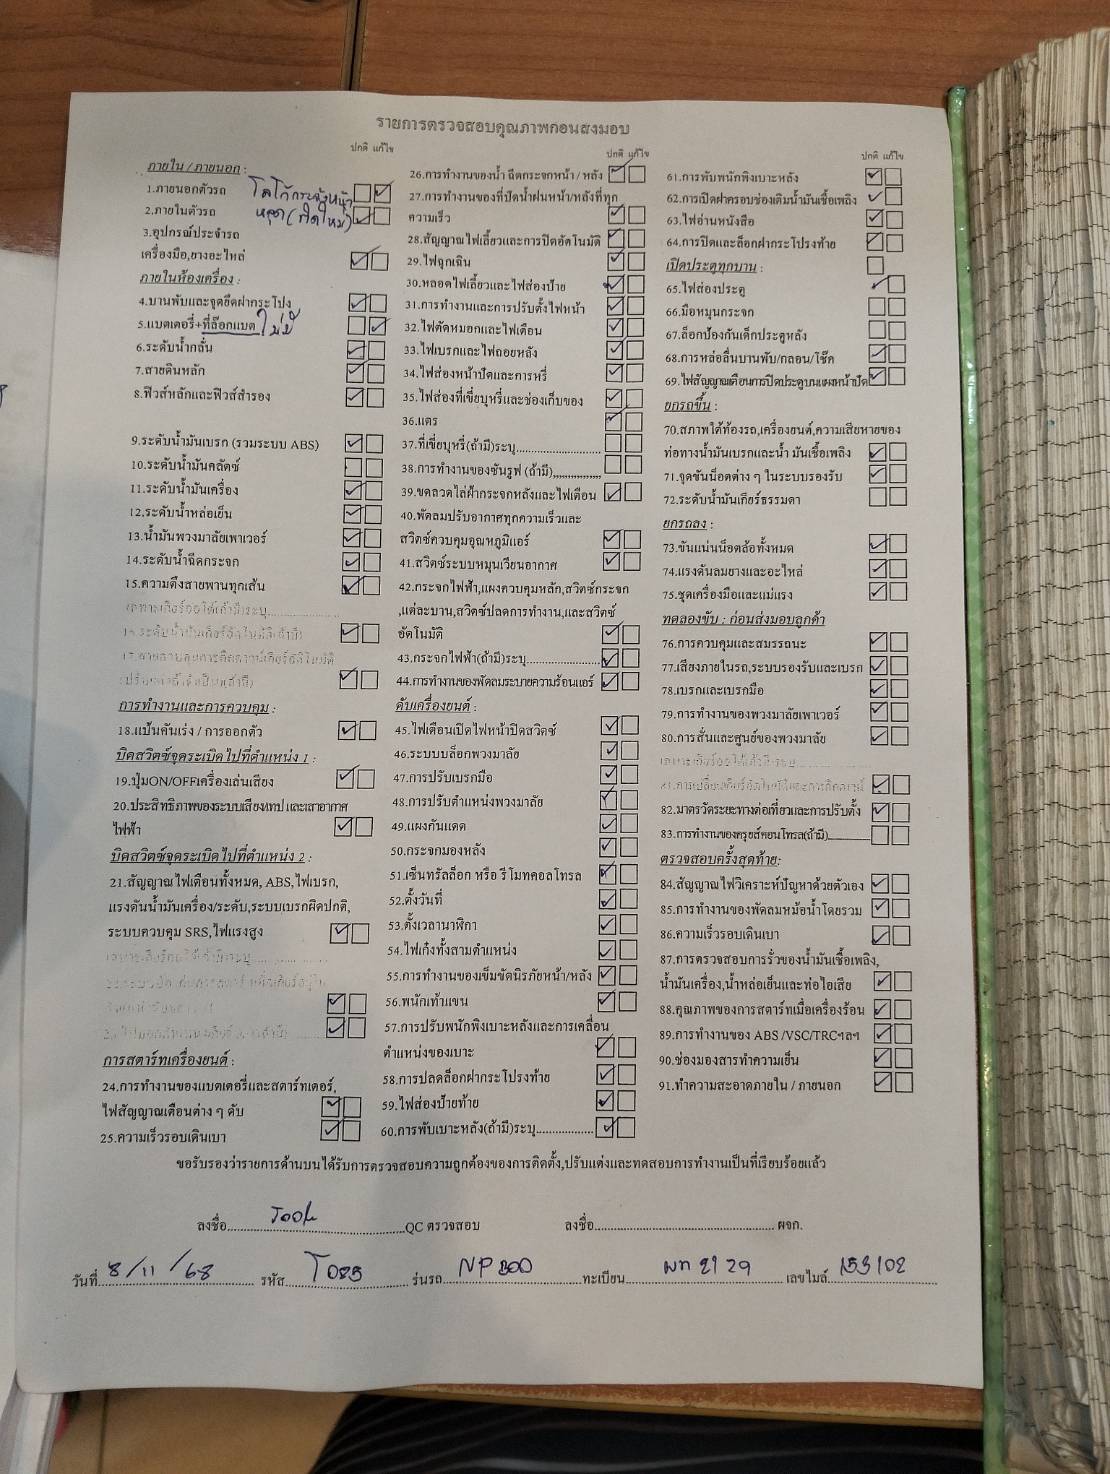 รายการตรวจสอบคุณภาพก่อนส่งมอบ
ปกติ แก้ไข
ภายใน / ภายนอก :
1.ภายนอกตัวรถ โลโก้กระจังหน้า
2.ภายในตัวรถ หลุด (ติดใหม่)
3.อุปกรณ์ประจำรถ
เครื่องมือ,ยางอะไหล่
ภายในห้องเครื่อง :
4.บานพับและจุดยึดฝากระโปง
5.แบตเตอรี่+ที่ล๊อกแบต ไม่มี
6.ระดับน้ำกลั่น
7.สายดินหลัก
8.ฟิวส์หลักและฟิวส์สำรอง
9.ระดับน้ำมันเบรก (รวมระบบ ABS)
10.ระดับน้ำมันคลัตช์
11.ระดับน้ำมันเครื่อง
12.ระดับน้ำหล่อเย็น
13.น้ำมันพวงมาลัยเพาเวอร์
14.ระดับน้ำฉีดกระจก
15.ความตึงสายพานทุกเส้น
การทำงานและการควบคุม :
18.แป้นคันเร่ง / การออกตัว
บิดสวิตซ์จุดระเบิดไปที่ตำแหน่ง 1 :
19.ปุ่มON/OFFเครื่องเล่นเสียง
20.ประสิทธิภาพของระบบเสียง/เทป และเสาอากาศ
ไฟฟ้า
บิดสวิตซ์จุดระเบิดไปที่ตำแหน่ง 2 :
21.สัญญาณไฟเตือนทั้งหมด, ABS,ไฟเบรก,
แรงดันน้ำมันเครื่อง/ระดับ,ระบบเบรกผิดปกติ,
ระบบควบคุม SRS,ไฟแรงสูง
การสตาร์ทเครื่องยนต์ :
24.การทำงานของแบตเตอรี่และสตาร์ทเตอร์,
ไฟสัญญาณเตือนต่าง ๆ ดับ
25.ความเร็วรอบเดินเบา
ปกติ แก้ไข
26.การทำงานของน้ำ ฉีดกระจกหน้า / หลัง
27.การทำงานของที่ปัดน้ำฝนหน้า/หลังที่ทุก
ความเร็ว
28.สัญญาณไฟเลี้ยวและการปิดอัตโนมัติ
29.ไฟฉุกเฉิน
30.หลอดไฟเลี้ยวและไฟส่องป้าย
31.การทำงานและการปรับตั้งไฟหน้า
32.ไฟตัดหมอกและไฟเตือน
33.ไฟเบรกและไฟถอยหลัง
34.ไฟส่องหน้าปัดและการหรี่
35.ไฟส่องที่เขี่ยบุหรี่และช่องเก็บของ
36.แตร
37.ที่เขี่ยบุหรี่(ถ้ามี)ระบุ..........................
38.การทำงานของซันรูฟ (ถ้ามี)................
39.ขดลวดไล่ฝ้ากระจกหลังและไฟเตือน
40.พัดลมปรับอากาศทุกความเร็วและ
สวิตซ์ควบคุมอุณหภูมิแอร์
41.สวิตซ์ระบบหมุนเวียนอากาศ
42.กระจกไฟฟ้า,แผงควบคุมหลัก,สวิตซ์กระจก
,แต่ละบาน,สวิตซ์ปลดการทำงาน,และสวิตซ์
อัตโนมัติ
43.กระจกไฟฟ้า(ถ้ามี)ระบุ......................
44.การทำงานของพัดลมระบายความร้อนแอร์
ดับเครื่องยนต์ :
45.ไฟเตือนเปิดไฟหน้าปิดสวิตซ์
46.ระบบบล็อกพวงมาลัย
47.การปรับเบรกมือ
48.การปรับตำแหน่งพวงมาลัย
49.แผงกันแดด
50.กระจกมองหลัง
51.เซ็นทรัลล็อก หรือ รีโมทคอลโทรล
52.ตั้งวันที่
53.ตั้งเวลานาฬิกา
54.ไฟเก๋งทั้งสามตำแหน่ง
55.การทำงานของเข็มขัดนิรภัยหน้า/หลัง
56.พนักเท้าแขน
57.การปรับพนักพิงเบาะหลังและการเคลื่อน
ตำแหน่งของเบาะ
58.การปลดล็อกฝากระโปรงท้าย
59.ไฟส่องป้ายท้าย
60.การพับเบาะหลัง(ถ้ามี)ระบุ.................
ปกติ แก้ไข
61.การพับพนักพิงเบาะหลัง
62.การเปิดฝาครอบช่องเติมน้ำมันเชื้อเพลิง
63.ไฟอ่านหนังสือ
64.การปิดและล็อกฝากระโปรงท้าย
เปิดประตูทุกบาน :
65.ไฟส่องประตู
66.มือหมุนกระจก
67.ล็อกป้องกันเด็กประตูหลัง
68.การหล่อลื่นบานพับ/กลอน/โช๊ค
69.ไฟสัญญาณเตือนการปิดประตูบนแผงหน้าปัด
ยกรถขึ้น :
70.สภาพใต้ท้องรถ,เครื่องยนต์,ความเสียหายของ
ท่อทางน้ำมันเบรกและน้ำ มันเชื้อเพลิง
71.จุดขันน็อตต่าง ๆ ในระบบรองรับ
72.ระดับน้ำมันเกียร์ธรรมดา
ยกรถลง :
73.ขันแน่นน็อตล้อทั้งหมด
74.แรงดันลมยางและอะไหล่
75.ชุดเครื่องมือและแม่แรง
ทดลองขับ : ก่อนส่งมอบลูกค้า
76.การควบคุมและสมรรถนะ
77.เสียงภายในรถ,ระบบรองรับและเบรก
78.เบรกและเบรกมือ
79.การทำงานของพวงมาลัยเพาเวอร์
80.การสั่นและศูนย์ของพวงมาลัย
82.มาตรวัดระยะทางต่อเที่ยวและการปรับตั้ง
83.การทำงานของครูยส์คอนโทรล(ถ้ามี)..........
ตรวจสอบครั้งสุดท้าย:
84.สัญญาณไฟวิเคราะห์ปัญหาด้วยตัวเอง
85.การทำงานของพัดลมหม้อน้ำโดยรวม
86.ความเร็วรอบเดินเบา
87.การตรวจสอบการรั่วของน้ำมันเชื้อเพลิง,
น้ำมันเครื่อง,น้ำหล่อเย็นและท่อไอเสีย
88.คุณภาพของการสตาร์ทเมื่อเครื่องร้อน
89.การทำงานของ ABS /VSC/TRCฯลฯ
90.ช่องมองสารทำความเย็น
91.ทำความสะอาดภายใน / ภายนอก
ขอรับรองว่ารายการด้านบนได้รับการตรวจสอบความถูกต้องของการติดตั้ง,ปรับแต่งและทดสอบการทำงานเป็นที่เรียบร้อยแล้ว
ลงชื่อ..............................QC ตรวจสอบ ลงชื่อ.............................. ผจก.
วันที่ 8/11/68 รหัส T085 รุ่นรถ NP 300 ทะเบียน ผท 2129 เลขไมล์ 153102